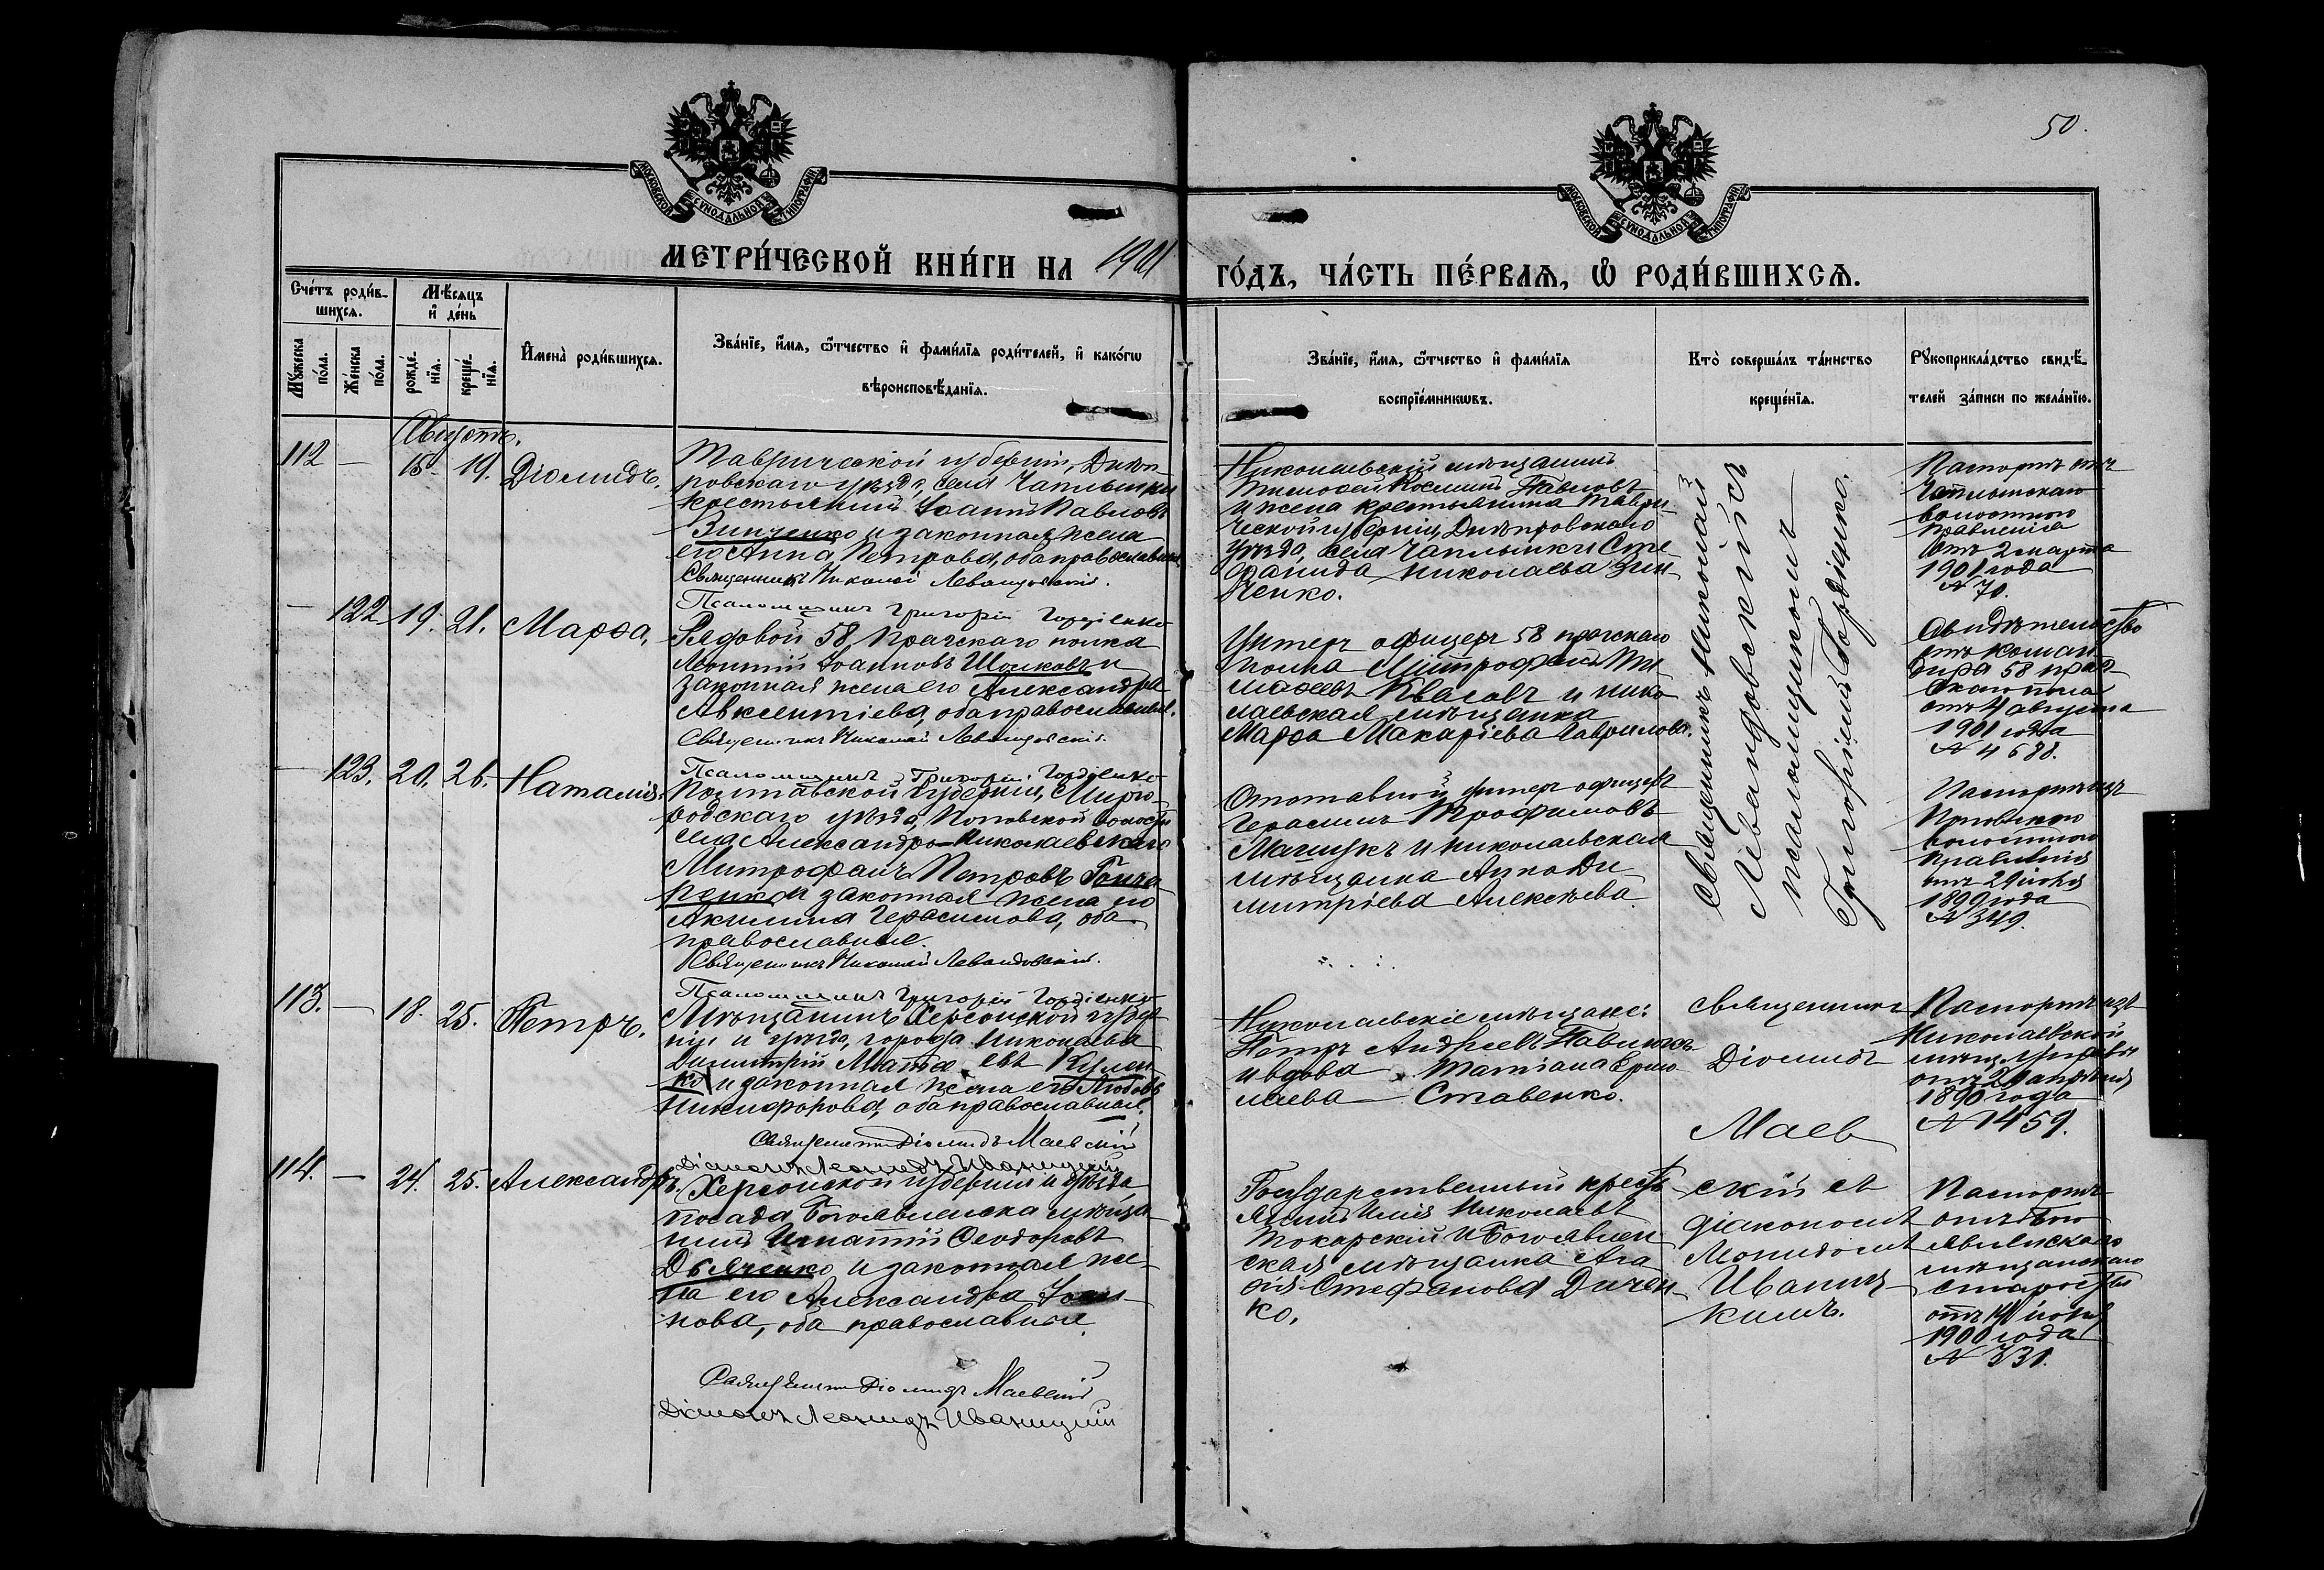 50.
МОСКОВСКОЙ СѴНОДАЛЬНОЙ ТИПОГРАФІИ
МОСКОВСКОЙ СѴНОДАЛЬНОЙ ТИПОГРАФІИ
МЕТРИ́ЧЕСКОЙ КНИ́ГИ НА 1901
ГО́ДЪ, ЧА́СТЬ ПЕ́РВАѦ, Ѡ РОДИ́ВШИХСѦ.
Сче́тъ роди́в-
шихсѧ.
Мꙋ́жеска
по́ла.
Же́нска
по́ла.
Мѣ́сѧцъ
и҆ де́нь
рожде́-
нїѧ.
креще́-
нїѧ.
И҆мена̀ роди́вшихсѧ.
Зва́нїе, и҆́мѧ, ѻ҆́тчество и҆ фами́лїѧ роди́телей, и҆ како́гѡ
вѣроисповѣ́данїѧ.
Зва́нїе, и҆́мѧ, ѻ҆́тчество и҆ фами́лїѧ
воспрїе́мникѡвъ.
Кто̀ соверша́лъ та́инство
креще́нїѧ.
Рꙋкоприкла́дство свидѣ́-
телей за́писи по жела́нїю.
Августъ.
112 — 15. 19. Діомидъ.
Таврической губерніи, Днѣп-
ровскаго уѣзда, села Чаплынки
крестьянинъ Іоаннъ Павловъ
Зинченко и законная жена
его Анна Петрова, оба православные
Священникъ Николай Левандовскій.
Псаломщикъ Григорій Гордіенко
Николаевскій мѣщанинъ
Тимофей Косминъ Павловъ
и жена крестьянина Таври-
ческой губерніи, Днѣпровскаго
уѣзда, села Чаплынки Сте-
фанида Николаева Зин-
ченко.
Священникъ Николай
Левандовскій съ
псаломщикомъ
Григоріемъ Гордіенко.
Паспортъ изъ
Чаплынскаго
волостного
правленія
отъ 2 марта
1901 года
№ 70.
— 122 19. 21. Марѳа.
Рядовой 58 Прагскаго полка
Леонтій Іоанновъ Шолковъ и
законная жена его Александра
Авксентіева, оба православные.
Священникъ Николай Левандовскій.
Псаломщикъ Григорій Гордіенко
Унтеръ офицеръ 58 прагскаго
полка Митрофанъ Ти
моѳеевъ и нико
лаевская мѣщанка
Марѳа Макаріева Гаврилова.
Свидѣтельство
отъ коман
дира 58 праг
скаго полка
отъ 4 августа
1901 года
№ 4688.
— 123. 20. 26. Наталія.
Полтавской губерніи, Мирго-
родскаго уѣзда, Поповской волости
села Александро-Николаевскаго
Митрофанъ Петровъ Гонча
ренко и законная жена его
Акилина Герасимова, оба
православные.
Священникъ Николай Левандовскій.
Псаломщикъ Григорій Гордіенко
Отставной унтеръ офицеръ
Герасимъ Трофимовъ
и николаевская
мѣщанка Анна Ди
митріева Алексѣева.
Паспортъ изъ
Поповскаго
волостного
правленія
отъ 29 іюня
1899 года
№ 349.
113. — 18. 25. Петръ.
Мѣщанинъ Херсонской губер
ніи и уѣзда, города Николаева
Димитрій Кулен
ко и законная жена его Любовь
Никифорова, оба православные.
Священникъ Діомидъ Маевскій
Діаконъ Леонидъ Иваницкій
Николаевскіе мѣщане:
Петръ Андреевъ
и вдова Татіана Ермо
лаева Ставенко.
Священникъ
Діомидъ
Маев
скій съ
діакономъ
Леонидомъ
Иваниц
кимъ.
Паспортъ изъ
Николаевской
мѣщ. управы
1890 года
№ 1459.
114. — 24. 25. Александръ.
Херсонской губерніи и уѣзда
посада Богоявленска мѣща-
нинъ Игнатій Ѳеодоровъ
Дьяченко и законная же-
на его Александра
нова, оба православные.
Священникъ Діомидъ Маевскій
Діаконъ Леонидъ Иваницкій
Государственный кресть-
янинъ Илія Николаевъ
Токарскій и Богоявлен
ская мѣщанка Ага
фія Стефанова Дичен
ко.
Паспортъ
отъ Бого
явленскаго
мѣщанскаго
старосты
1900 года
№ 331.